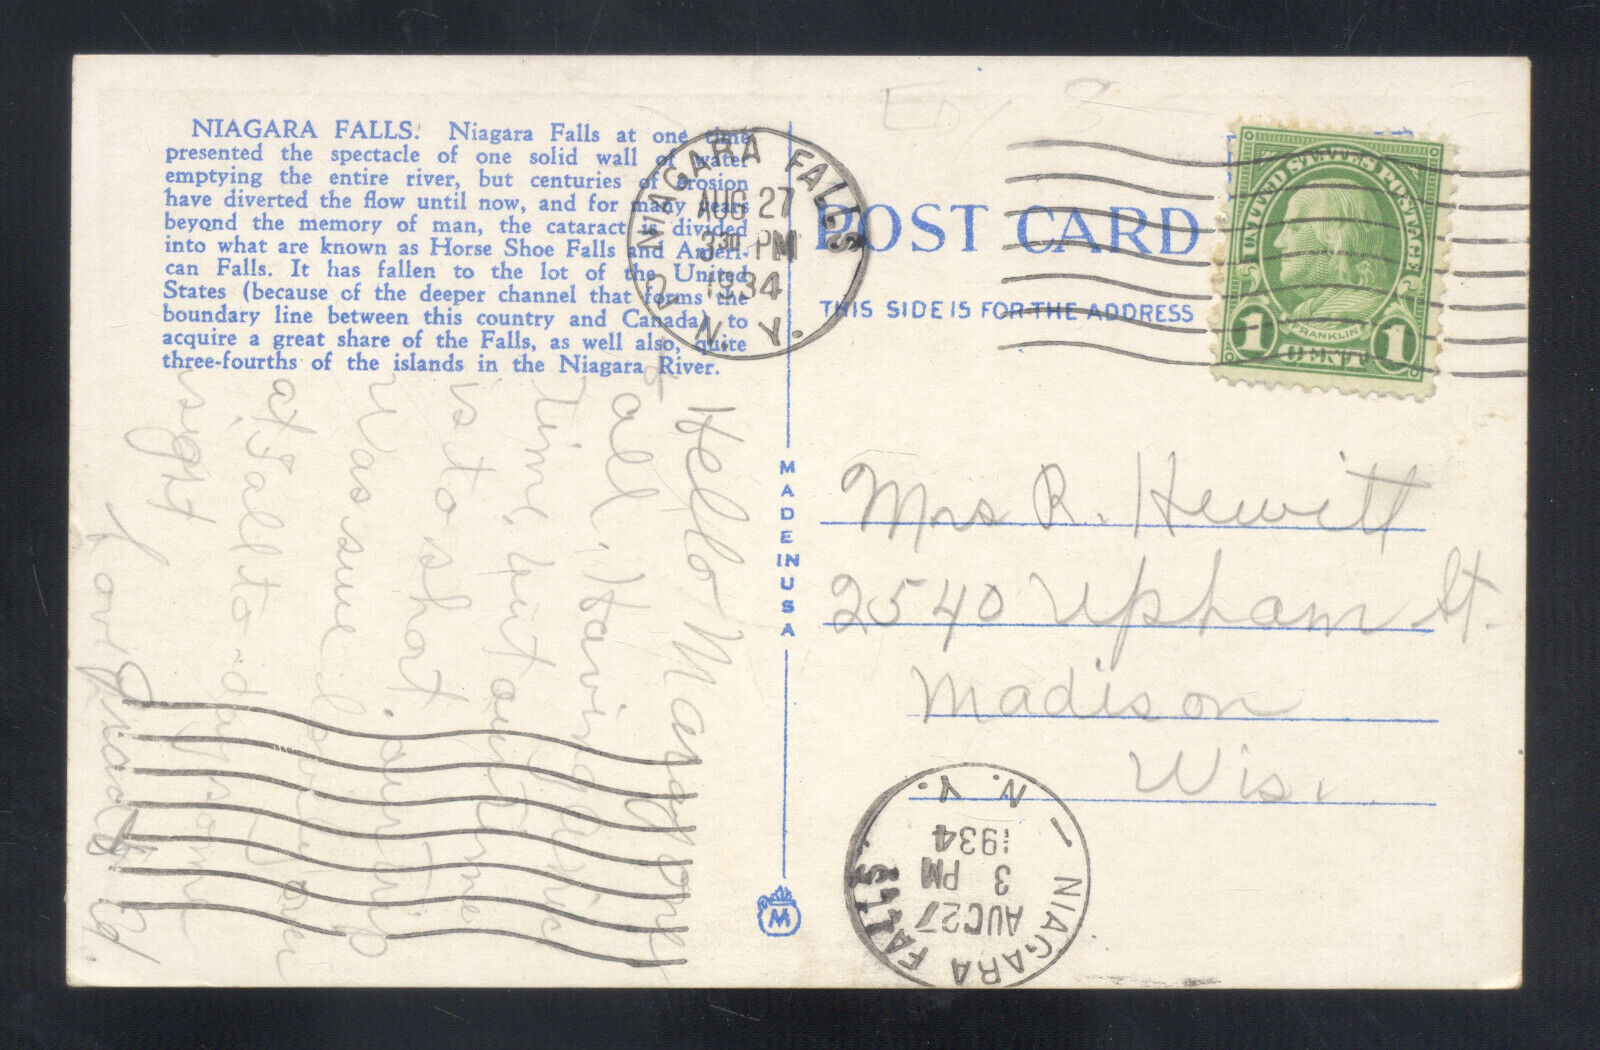 NIAGARA FALLS. Niagara Falls at one time
presented the spectacle of one solid wall of water
emptying the entire river, but centuries of erosion
have diverted the flow until now, and for many years
beyond the memory of man, the cataract is divided
into what are known as Horse Shoe Falls and Ameri-
can Falls. It has fallen to the lot of the United
States (because of the deeper channel that forms the
boundary line between this country and Canada) to
acquire a great share of the Falls, as well also, quite
three-fourths of the islands in the Niagara River.
Hello
all. Having
time, but our time
is to short. our trip
was
at Falls to-day some
sight
Love
MADE IN USA
M
NIAGARA FALLS
AUG 27
330 PM
1934
2 N. Y.
POST CARD
THIS SIDE IS FOR THE ADDRESS
UNITED STATES POSTAGE
FRANKLIN
1 CENT 1
Mrs R. Hewitt
2540 Upham St.
Madison
Wis.
NIAGARA FALLS
AUG 27
3 PM
1934
N. Y.